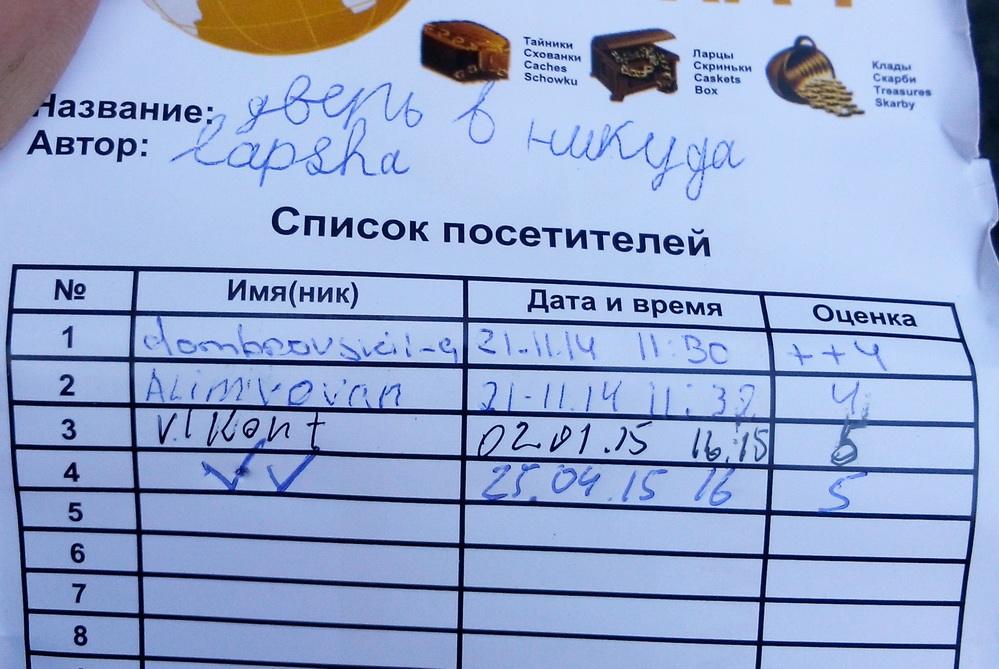 Тайники
Схованки
Caches
Schowku
Ларцы
Скриньки
Caskets
Box
Клады
Скарби
Treasures
Skarby
Название: дверь в никуда
Автор: lapsha
Список посетителей
№ Имя(ник) Дата и время Оценка
1 21.11.14 11:30 ++4
2 Alimvovan 21.11.14 11:32 4
3 Vikont 02.01.15 16:15 5
4 25.04.15 16 5
5
6
7
8